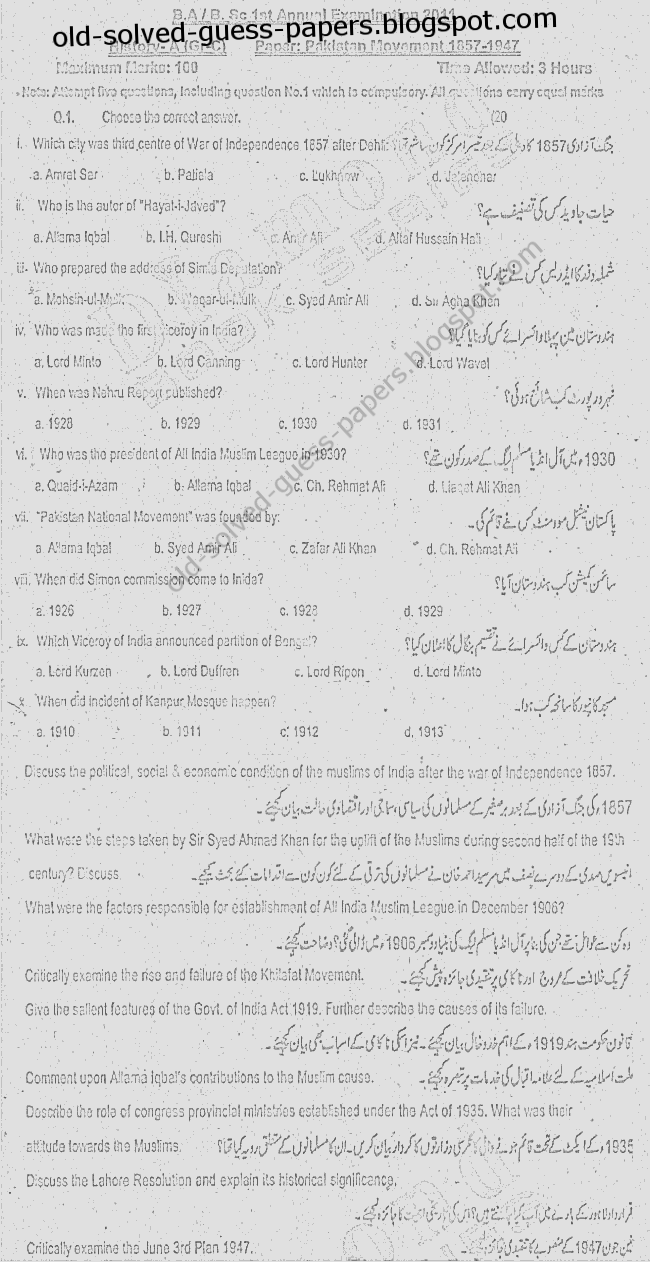 B.A / B. Sc 1st Annual Examination 2011
old-solved-guess-papers.blogspot.com
History- A (GPC) Paper: Pakistan Movement 1857-1947
Maximum Marks: 100 Time Allowed: 3 Hours
Note: Attempt five questions, including question No.1 which is compulsory. All questions carry equal marks
Q.1. Choose the correct answer. (20
i. Which city was third centre of War of Independence 1857 after Dehli: جنگ آزادی 1857 کا دہلی کے بعد تیسرا مرکز کون سا شہر تھا؟
a. Amrat Sar b. Patiala c. Lukhnow d. Jalandhar
ii. Who is the autor of "Hayat-i-Javed"? حیات جاوید کس کی تصنیف ہے؟
a. Allama Iqbal b. I.H. Qureshi c. Amir Ali d. Altaf Hussain Hali
iii- Who prepared the address of Simla Deputation? شملہ وفد کا ایڈریس کس نے تیار کیا؟
a. Mohsin-ul-Mulk b. Waqar-ul-Mulk c. Syed Amir Ali d. Sir Agha Khan
iv. Who was made the first viceroy in India? ہندوستان میں پہلا وائسرائے کس کو بنایا گیا؟
a. Lord Minto b. Lord Canning c. Lord Hunter d. Lord Wavel
v. When was Nehru Report published? نہرو رپورٹ کب شائع ہوئی؟
a. 1928 b. 1929 c. 1930 d. 1931
vi. Who was the president of All India Muslim League in 1930? 1930ء میں آل انڈیا مسلم لیگ کے صدر کون تھے؟
a. Quaid-i-Azam b. Allama Iqbal c. Ch. Rehmat Ali d. Liaqat Ali Khan
vii. "Pakistan National Movement" was founded by: پاکستان نیشنل موومنٹ کس نے قائم کی۔
a. Allama Iqbal b. Syed Amir Ali c. Zafar Ali Khan d. Ch. Rehmat Ali
viii. When did Simon commission come to Inida? سائمن کمیشن کب ہندوستان آیا؟
a. 1926 b. 1927 c. 1928 d. 1929
ix. Which Viceroy of India announced partition of Bengal? ہندوستان کے کس وائسرائے نے تقسیم بنگال کا اعلان کیا؟
a. Lord Kurzen b. Lord Duffren c. Lord Ripon d. Lord Minto
x. When did incident of Kanpur Mosque happen? مسجد کانپور کا سانحہ کب ہوا۔
a. 1910 b. 1911 c. 1912 d. 1913
Discuss the political, social & economic condition of the muslims of India after the war of Independence 1857.
1857ء کی جنگ آزادی کے بعد برصغیر کے مسلمانوں کی سیاسی، سماجی اور اقتصادی حالت بیان کیجئے۔
What were the steps taken by Sir Syed Ahmad Khan for the uplift of the Muslims during second half of the 19th
century? Discuss. انیسویں صدی کے دوسرے نصف میں سرسید احمد خان نے مسلمانوں کی ترقی کے لئے کون کون سے اقدامات کئے بحث کیجیے۔
What were the factors responsible for establishment of All India Muslim League in December 1906?
وہ کن سے عوامل تھے جن کی بنا پر آل انڈیا مسلم لیگ کی بنیاد دسمبر 1906ء میں ڈالی گئی؟ وضاحت کیجئے۔
Critically examine the rise and failure of the Khilafat Movement. تحریک خلافت کے عروج اور ناکامی پر تنقیدی جائزہ پیش کیجئے۔
Give the salient features of the Govt. of India Act 1919. Further describe the causes of its failure.
قانون حکومت ہند 1919ء کے اہم خدوخال بیان کیجئے۔ نیز اسکی ناکامی کے اسباب بھی بیان کیجئے۔
Comment upon Allama Iqbal's contributions to the Muslim cause. ملت اسلامیہ کے لئے علامہ اقبال کی خدمات پر تبصرہ کیجئے۔
Describe the role of congress provincial ministries established under the Act of 1935. What was their
attitude towards the Muslims. 1935ء کے ایکٹ کے تحت قائم ہونے والی کانگرسی وزارتوں کا کردار بیان کریں۔ ان کا مسلمانوں کے متعلق رویہ کیا تھا؟
Discuss the Lahore Resolution and explain its historical significance.
قرارداد لاہور کے بارے میں آپ کیا جانتے ہیں؟ اس کی تاریخی اہمیت کا جائزہ لیجئے۔
Critically examine the June 3rd Plan 1947. تین جون 1947 کے منصوبے کا تنقیدی جائزہ لیجئے۔
old-solved-guess-papers.blogspot.com